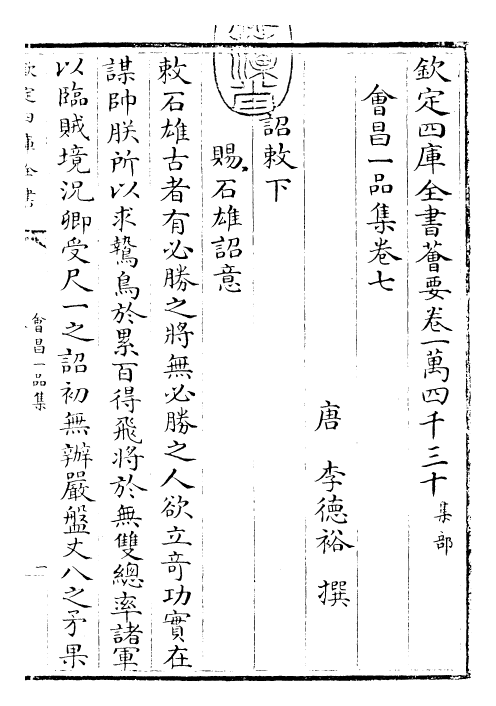 欽定四庫全書薈要卷一萬四千三十 集部
會昌一品集卷七
唐 李德裕 撰
詔敕下
賜石雄詔意
敕石雄古者有必勝之將無必勝之人欲立竒功實在
謀帥朕所以求鷙鳥於累百得飛將於無雙總率諸軍
以臨賊境況卿受尺一之詔初無辦嚴盤丈八之矛果
欽定四庫全書
會昌一品集
一